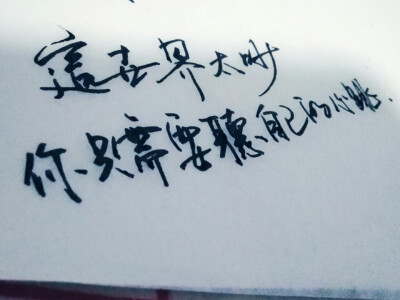 這世界太吵
你只需要聽自己的心跳.